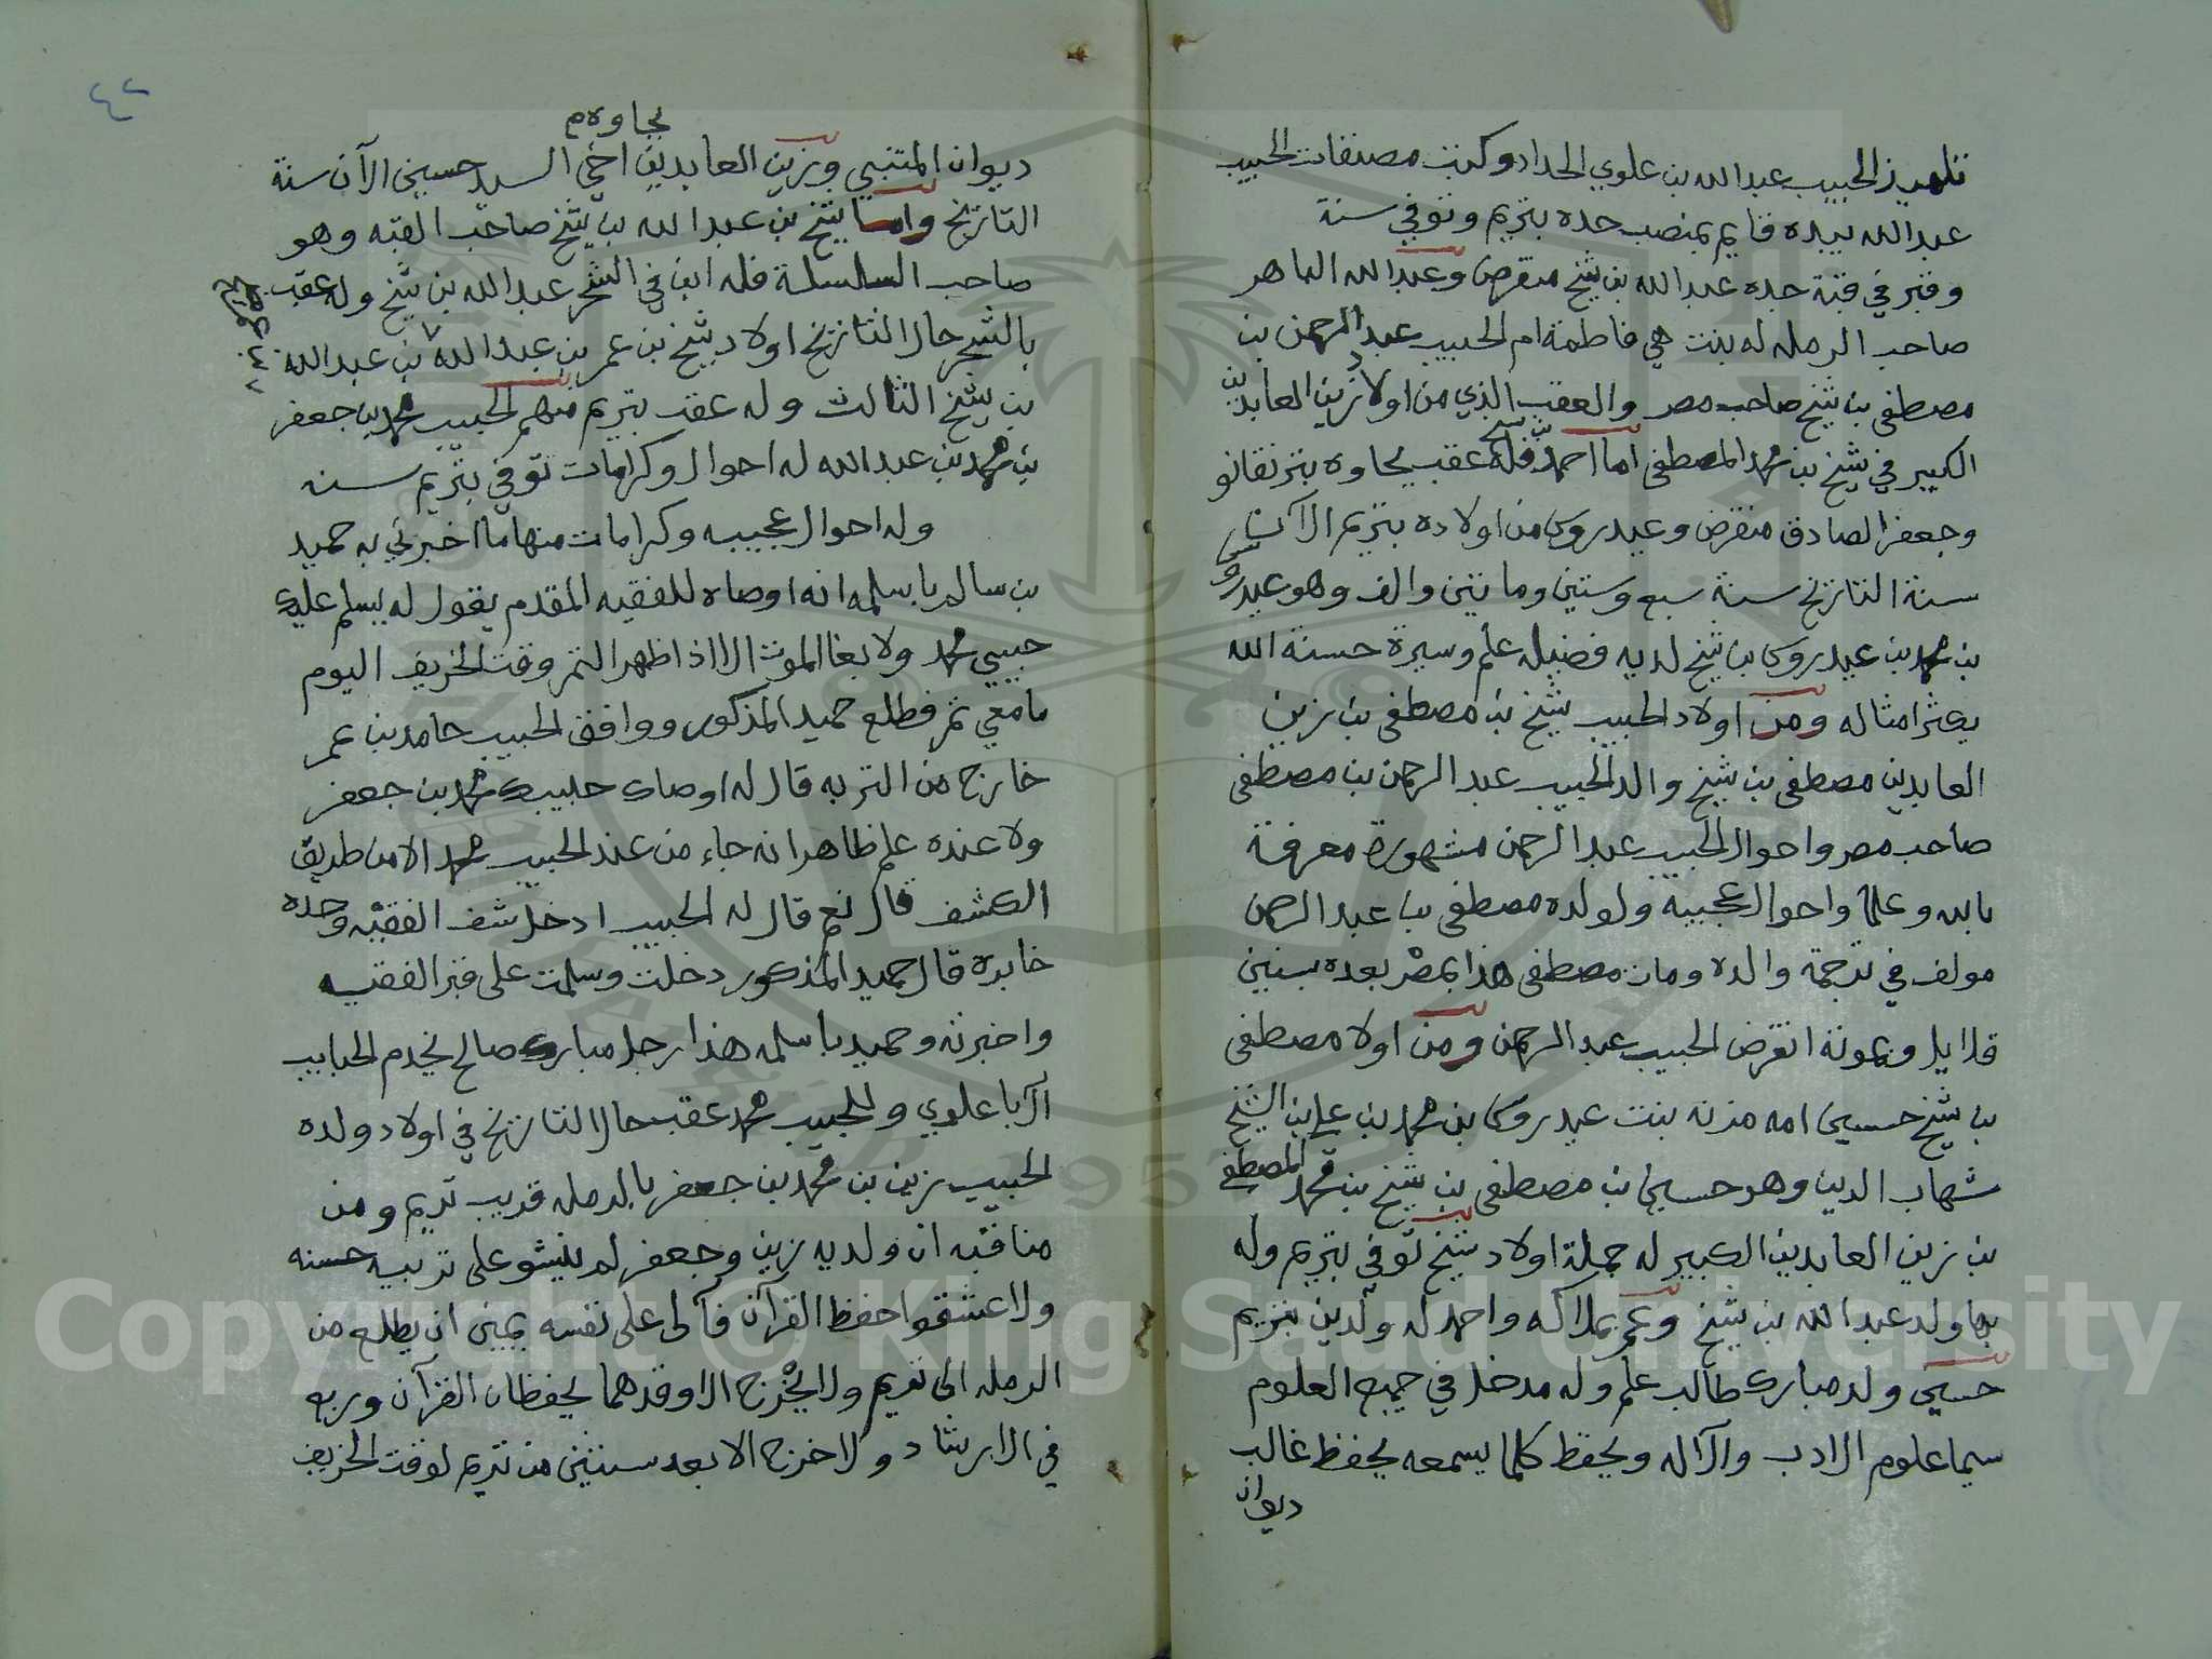 تلميذ الحبيب عبدالله بن علوي الحداد وكتب مصنفات الحبيب
عبدالله بيده قايم بمنصب جده بتريم وتوفي سنة
وقبر في قبة جده عبدالله بن شيخ منقرض وعبدالله الماهر
صاحب الرمله له بنت هي فاطمة ام الحبيب عبدالرحمن بن
مصطفى بن شيخ صاحب مصر والعقب الذي من اولاد زين العابدين
الكبير في شيخ بن محمد المصطفى اما احمد بن شيخ فله عقب بجاوه بترنقانو
وجعفر الصادق منقرض وعيدروس من اولاده بتريم الآن
سنة التاريخ سنة سبع وستين ومائتين والف وهو عيدروس
بن محمد بن عيدروس بن شيخ لديه فضيله علم وسيرة حسنة الله
يكثر امثاله ومن اولاد الحبيب شيخ بن مصطفى بن زين
العابدين مصطفى بن شيخ والد الحبيب عبد الرحمن بن مصطفى
صاحب مصر واحوال الحبيب عبد الرحمن مشهورة معرفة
بالله وعلما واحوال عجيبه ولولده مصطفى بن عبد الرحمن
مولف في ترجمة والده ومات مصطفى هذا بمصر بعده بسنين
قلايل وبموته انقرض الحبيب عبد الرحمن ومن اولا مصطفى
بن شيخ حسين امه مزنه بنت عيدروس بن محمد بن علي بن الشيخ
شهاب الدين وهو حسين بن مصطفى بن شيخ بن محمد المصطفى
بن زين العابدين الكبير له جملة اولاد شيخ توفي بتريم وله
بها ولد عبدالله بن شيخ وعمر بملاكه واحمد له ولدين بتريم
حسين ولد مبارك طالب علم وله مدخل في جميع العلوم
سيما علوم الادب والآله ويحفظ كلما يسمعه يحفظ غالب
ديوان
٤٢
بجاوه م
ديوان المتنبي وزين العابدين اخي السيد حسين الآن سنة
التاريخ واما شيخ بن عبد الله بن شيخ صاحب القبه وهو
صاحب السلسلة فله ابن في الشحر عبدالله بن شيخ وله عقب
بالشحر حال التاريخ اولاد شيخ بن عمر بن عبدالله بن عبدالله
بن شيخ الثالث وله عقب بتريم منهم الحبيب محمد بن جعفر
بن محمد بن عبدالله له احوال وكرامات توفي بتريم سنه
وله احوال عجيبه وكرامات منها ما اخبرني به حميد
بن سالم باسلمه انه اوصاه للفقيه المقدم يقول له يسلم عليك
حبيبي محمد ولا بغا الموت الا اذا ظهر التمر وقت الخريف اليوم
مامعي تمر فطلع حميد المذكور ووافق الحبيب حامد بن عمر
خارج من التربه قال له اوصاك حبيبك محمد بن جعفر
ولا عنده علم ظاهر انه جاء من عند الحبيب محمد الا من طريق
الكشف قال نعم قال له الحبيب ادخل شف الفقيه وحده
خابره قال حميد المذكور دخلت وسلمت على قبر الفقيه
واخبرته وحميد باسلمه هذا رجل مبارك صالح يخدم الحبايب
آل باعلوي وللحبيب محمد عقب حال التاريخ في اولاد ولده
الحبيب زين بن محمد بن جعفر بالرمله قريب تريم ومن
مناقبه ان ولديه زين وجعفر لم ينشو على تربيه حسنه
ولا عشقوا حفظ القرآن فآلى على نفسه يمين ان يطلع من
الرمله الى تريم ولا يخرج الا وقدهما يحفظان القرآن وربع
في الارشاد ولا خرج الا بعد سنتين من تريم لوقت الخريف